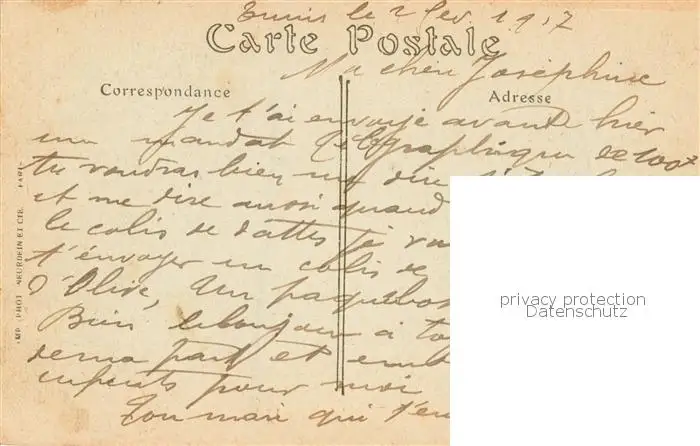 Tunis le 2 fev 1917
Carte Postale
Ma chèri Joséphine
Correspondance
Adresse
Je t'ai envoyé avant hier
un mandat télégraphique de 100
tu voudras bien me dire
et me dire aussi quand
le colis de dattes je
t'envoyer un colis de
D'Olive, un paquebot
Bien le bonjour a
de ma part et
enfants pour moi
Ton mari qui t'em
IMP. PHOT. NEURDEIN ET CIE. PARIS
privacy protection
Datenschutz